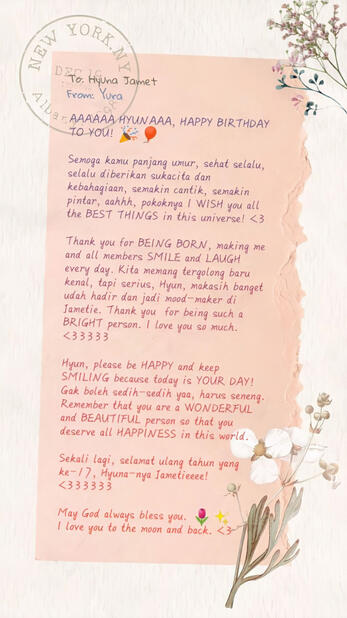 NEW YORK, NY
DEC 10
To: Hyuna Jamet
From: Yura
AAAAAA HYUNAAA, HAPPY BIRTHDAY
TO YOU! 🎉🎈
Semoga kamu panjang umur, sehat selalu,
selalu diberikan sukacita dan
kebahagiaan, semakin cantik, semakin
pintar, aahhh, pokoknya I WISH you all
the BEST THINGS in this universe! <3
Thank you for BEING BORN, making me
and all members SMILE and LAUGH
every day. Kita memang tergolong baru
kenal, tapi serius, Hyun, makasih banget
udah hadir dan jadi mood-maker di
Jametie. Thank you for being such a
BRIGHT person. I love you so much.
<33333
Hyun, please be HAPPY and keep
SMILING because today is YOUR DAY!
Gak boleh sedih-sedih yaa, harus seneng.
Remember that you are a WONDERFUL
and BEAUTIFUL person so that you
deserve all HAPPINESS in this world.
Sekali lagi, selamat ulang tahun yang
ke-17, Hyuna-nya Jametieeee!
<333333
May God always bless you. 🌷✨
I love you to the moon and back. <3